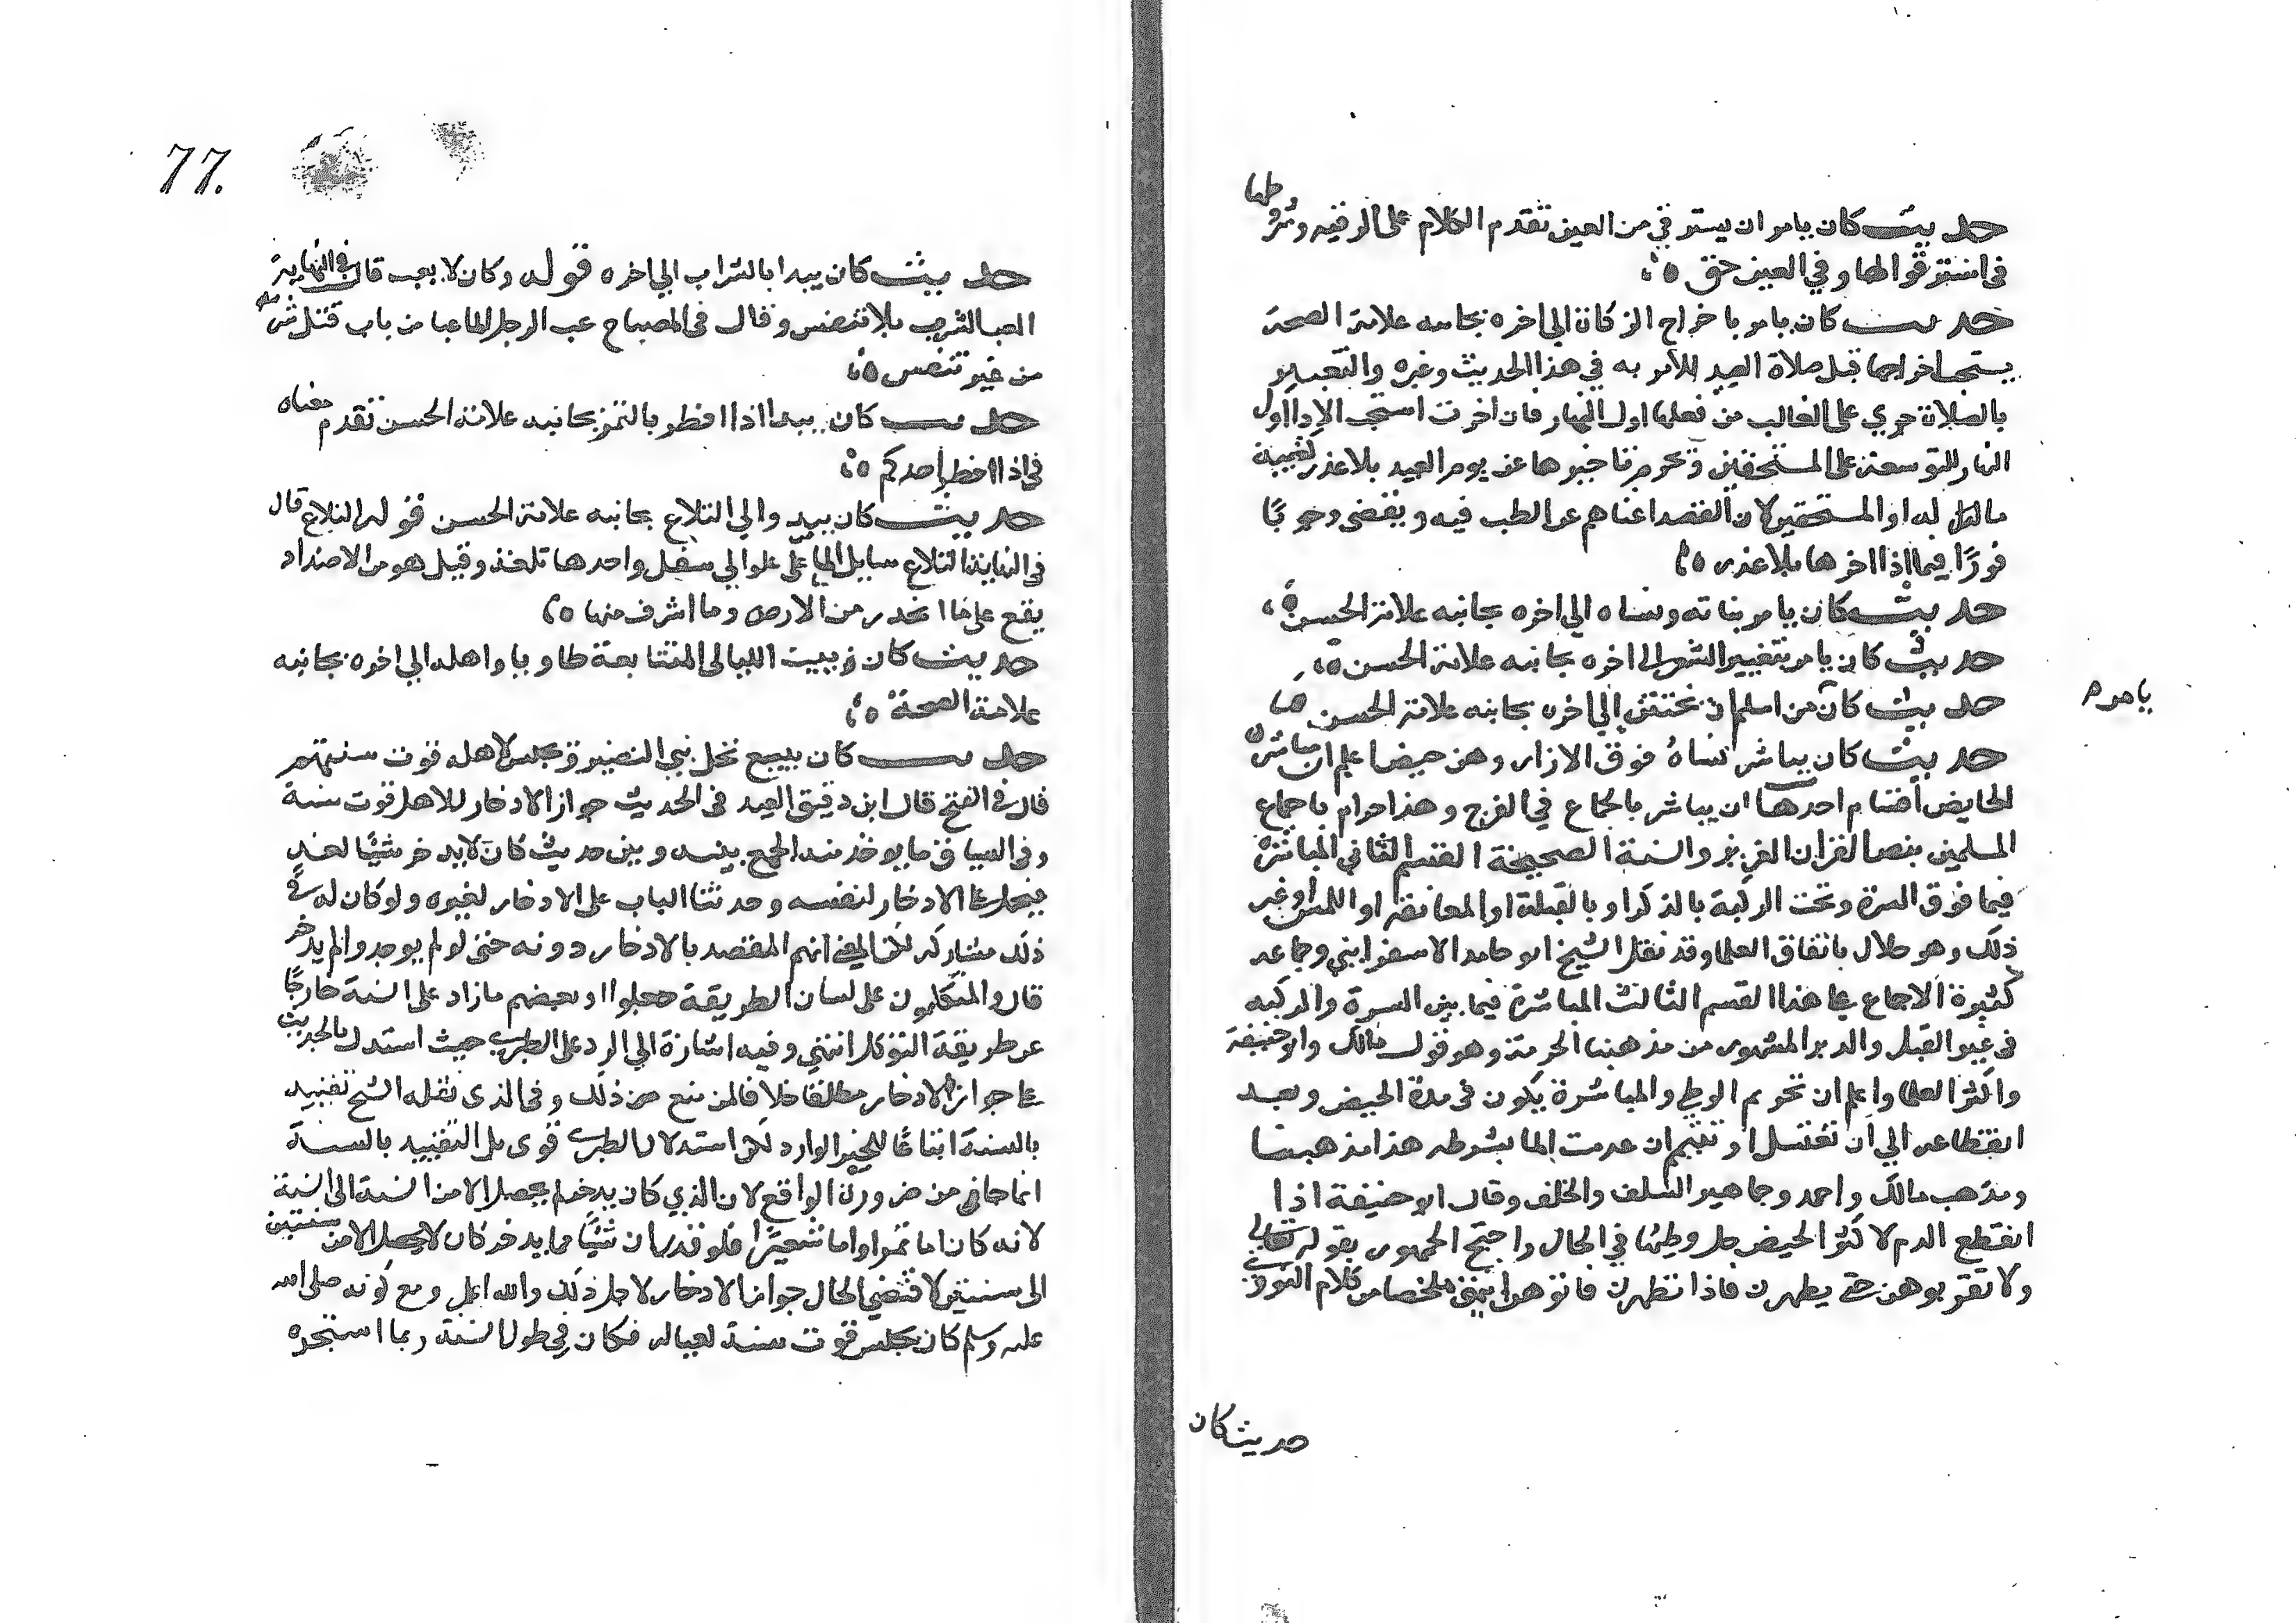 حديث كان يامر ان يسترقي من العين تقدم الكلام على الرقيه وشروطها
في استرقوا لها وفي العين حق
حديث كان يامر باخراج الزكاة الي اخره بجانبه علامة الصحة
يستحب اخراجها قبل صلاة العيد للامر به في هذا الحديث وغيره والتعبير
بالصلاة جري على الغالب من فعلها اول النهار فان اخرت استحب الادا اول
النهار للتوسعة على المستحقين ويحرم تاخيرها عن يوم العيد بلا عذر كغيبة
ماله او المستحقين لان القصد اغناهم عن الطلب فيه ويقضي وجوبا
فورًا فيما اذا اخرها بلا عذر
حديث كان يامر بناته ونساه الي اخره بجانبه علامة الحسن
حديث كان يامر بتغيير الشعر الى اخره بجانبه علامة الحسن
يامر
حديث كان من اسلم ان يختتن الي اخره بجانبه علامة الحسن
حديث كان يباشر نساهُ فوق الازار وهن حيض اعلم ان مباشرة
الحايض اقسام احدها ان يباشر بالجماع في الفرج وهذا حرام باجماع
المسلمين بنص القران العزيز والسنة الصحيحة القسم الثاني المباشرة
فيما فوق السرة وتحت الركبة بالذكر او بالقبلة او المعانقه او اللمس او غير
ذلك وهو حلال باتفاق العلما وقد نقل الشيخ ابو حامد الاسفرايني وجماعه
كثيرة الاجماع على هذا القسم الثالث المباشرة فيما بين السرة والركبه
في غير القبل والدبر المشهور من مذهبنا الحرمة وهو قول مالك وابو حنيفة
واكثر العلما واعلم ان تحريم الوطي والمباشرة يكون في مدة الحيض وبعد
انقطاعه الي ان تغتسل او تتيمم ان عدمت الما بشرطه هذا مذهبنا
ومذهب مالك واحمد وجماهير السلف والخلف وقال ابو حنيفة اذا
انقطع الدم لاكثر الحيض حل وطئها في الحال واحتج الجمهور بقوله تعالى
ولا تقربوهن حتى يطهرن فاذا تطهرن فاتوهن انتهى ملخصا من كلام النووي
حديث كان
77.
حديث كان يبدا بالشراب الي اخره قوله وكان لا يعب قال في النهاية
العب الشرب بلا تنفس وقال في المصباح عب الرجل الما عبا من باب قتل شربه
من غير تنفس
حديث كان يبدا اذا افطر بالتمر بجانبه علامة الحسن تقدم معناه
في اذا افطر احدكم
حديث كان يبدوالي التلاع بجانبه علامة الحسن قوله التلاع قال
في النهاية التلاع سايل الما من علو الي سفل واحدها تلعة وقيل هو من الاضداد
يقع على ما انحدر من الارض وما اشرف منها
حديث كان يبيت الليالى المتتابعة طاويا واهله الي اخره بجانبه
علامة الصحة
حديث كان يبيع نخل بني النضير ويحبس لاهله قوت سنتهم
قال في الفتح قال ابن دقيق العيد في الحديث جواز الادخار للاهل قوت سنة
وفي السياق ما يوخذ منه الجمع بينه وبين حديث كان لا يدخر شيًا لغد
فيحمل على الادخار لنفسه وحديثنا الباب على الادخار لغيره ولو كان له في
ذلك مشاركه لكن المعنى انهم المقصد بالادخار دونه حتى لو لم يوجدوا لم يدخر
قال والمتكلمون على لسان الطريقة جعلوا او بعضهم ما زاد على السنة خارجًا
عن طريقة التوكل انتهي وفيه اشارة الي الرد على الطبري حيث استدل بالحديث
على جواز الادخار مطلقا خلافا لمن منع من ذلك وفي الذي نقله الشيخ تقييد
بالسنة اتباعًا للخبر الوارد لكن استدلال الطبري قوى بل التقييد بالسنة
انما جا في من ضرورة الواقع لان الذي كان يدخر لم يحصل الا من السنة الى السنة
لانه كان اما تمرا واما شعيرًا فلو قدر ان شيًا مما يدخر كان لا يحصل الا من سنتين
الى سنتين لاقتضي الحال جواز الادخار لاجل ذلك والله اعلم ومع كونه صلى الله
عليه وسلم كان يحبس قوت سنة لعياله فكان في طول السنة ربما استجره